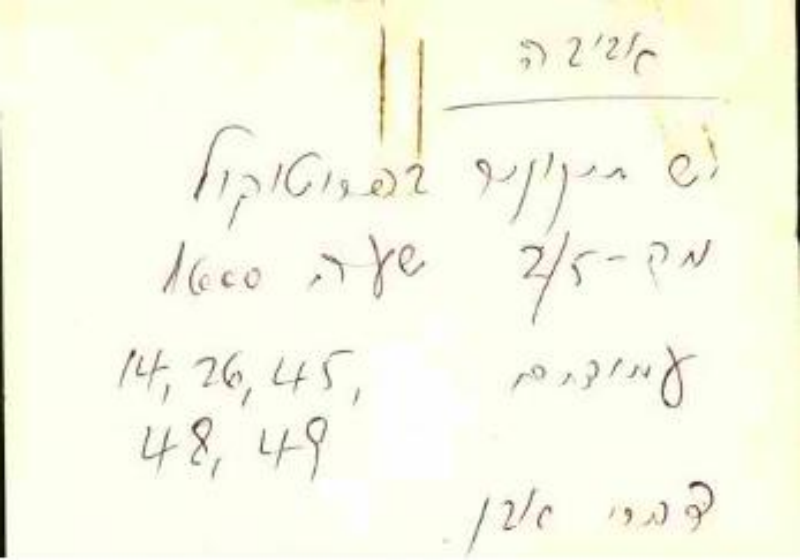 אביבה
יש תיקונים בפרוטוקול
מה-2/5 שעה 1600
עמודים 14, 26, 45,
48, 49
דברי אבן